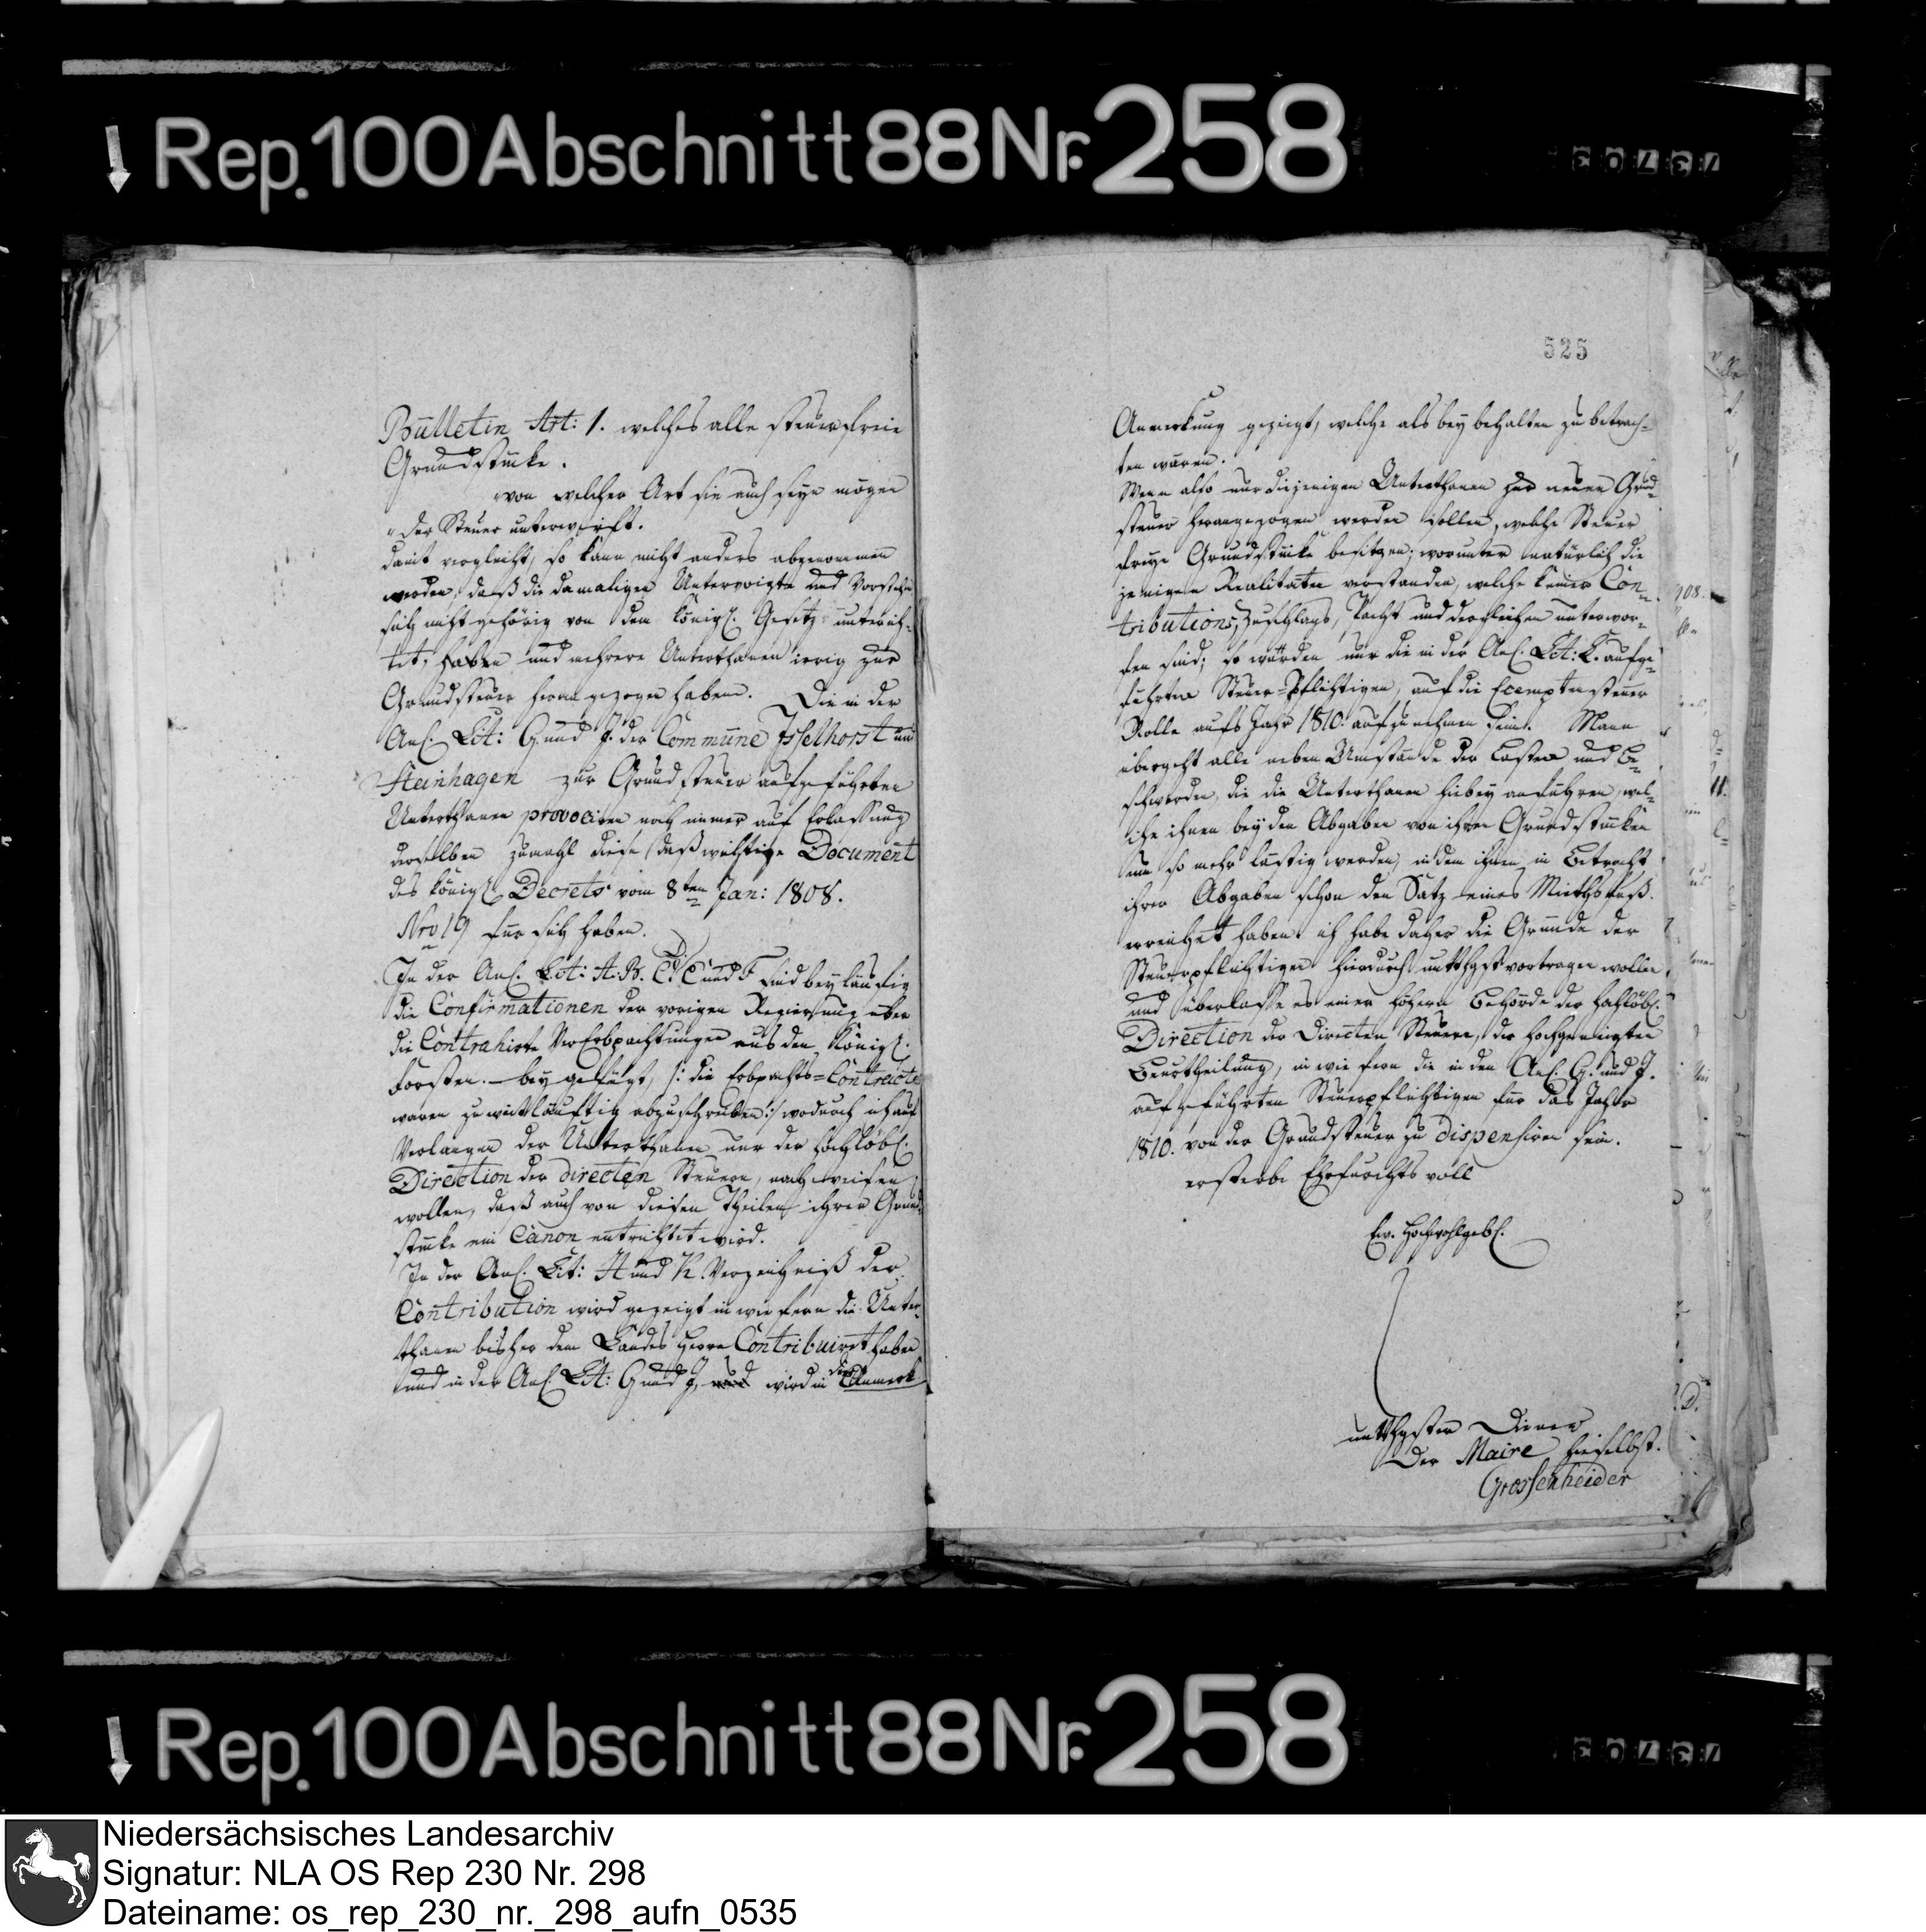 Rep. 100 Abschnitt 88 Nr. 258
73703
Bulletin Art: 1. welches alle steuerfreie
Grundstücke.
„von welcher Art sie auch seyn mögen
„der Steuer unterwirft.
damit vergleicht, so kann nicht anders abgenommen
werden, daß die damaligen Untervoigte und Vorsteher
sich nicht gehörig von dem königl. Gesetz unterich-
tet, haben und mehrere Unterthanen irrig zur
Grundsteuer heran gezogen haben. Die in der
Anl. Lit: G. und J. der Commune Isselhorst und
Steinhagen zur Grundsteuer aufgeführten
Unterthanen provociren noch immer auf Erlassung
derselben zumahl diese das wichtige Document
des königl. Decrets vom 8ten Jan: 1808.
Nro 19 für sich haben.
In der Anl. Lit: A. B. C. und F sind beyläufig
die Confirmationen der vorigen Regierung über
die Contrahirte Vererbpachtungen aus den Königl.
Forsten. beygefügt, /: die Erbpachts=Contracte
waren zu weitläuftig abzuschreiben :/ wodurch ich auf
Verlangen der Unterthanen nur der hochlöbl.
Direction der directen Steuern, nachweisen
wollen, daß auch von diesen Theilen ihrer Grund-
stücke ein Canon entrichtet wird.
In der Anl. Lit: H und K. Verzeichniß der
Contribution wird gezeigt in wie fern die Unter-
thanen bisher dem Landes Herrn Contribuiret haben
und in der Anl. Lit: G und J, wird in der Anmerk
525
Anmerkung gezeigt, welche als bey behalten zu betrach-
ten wären.
Wenn also nur diejenigen Unterthanen zur neuen Grund-
steuer herangezogen werden sollen, welche Steuer
freye Grundstücke besitzen; worunter natürlich die
jenigen Realitäten verstanden, welche keiner Con-
tributions, Zuschlags, Pacht und dergleichen unterwor-
fen sind; so würden nur die in der Anl. Lit: L. aufge-
führten Steuer=Pflichtigen, auf die Exemptensteuer
Rolle aufs Jahr 1810. aufzunehmen sein. Mann
übergeht alle neben Umstände der Lasten und Be-
schwerden, die die Unterthanen hiebey anführen, wel-
che ihnen bey den Abgaben von ihren Grundstücken
um so mehr lästig werden, in dem ihnen in Betracht
ihrer Abgaben schon den Satz eines Miethspreiß.
erreichet haben. ich habe daher die Gründe der
Steuerpflichtigen hierdurch untthgst vortragen wollen,
und überlasse es einer höhern Behörde der hochlöbl.
Direction der Directen Steuern, der hochgeneigten
Beurtheilung, in wie fern die in den Anl. G. und J.
aufgeführten Steuerpflichtigen für das Jahr
1810. von der Grundsteuer zu dispensiren sein.
ersterbe Ehrfurchts voll
Ew. Hochwohlgebl.
untthgster Diener
Der Maire hieselbst.
Grossenheider
Rep. 100 Abschnitt 88 Nr. 258
73703
Niedersächsisches Landesarchiv
Signatur: NLA OS Rep 230 Nr. 298
Dateiname: os_rep_230_nr._298_aufn_0535